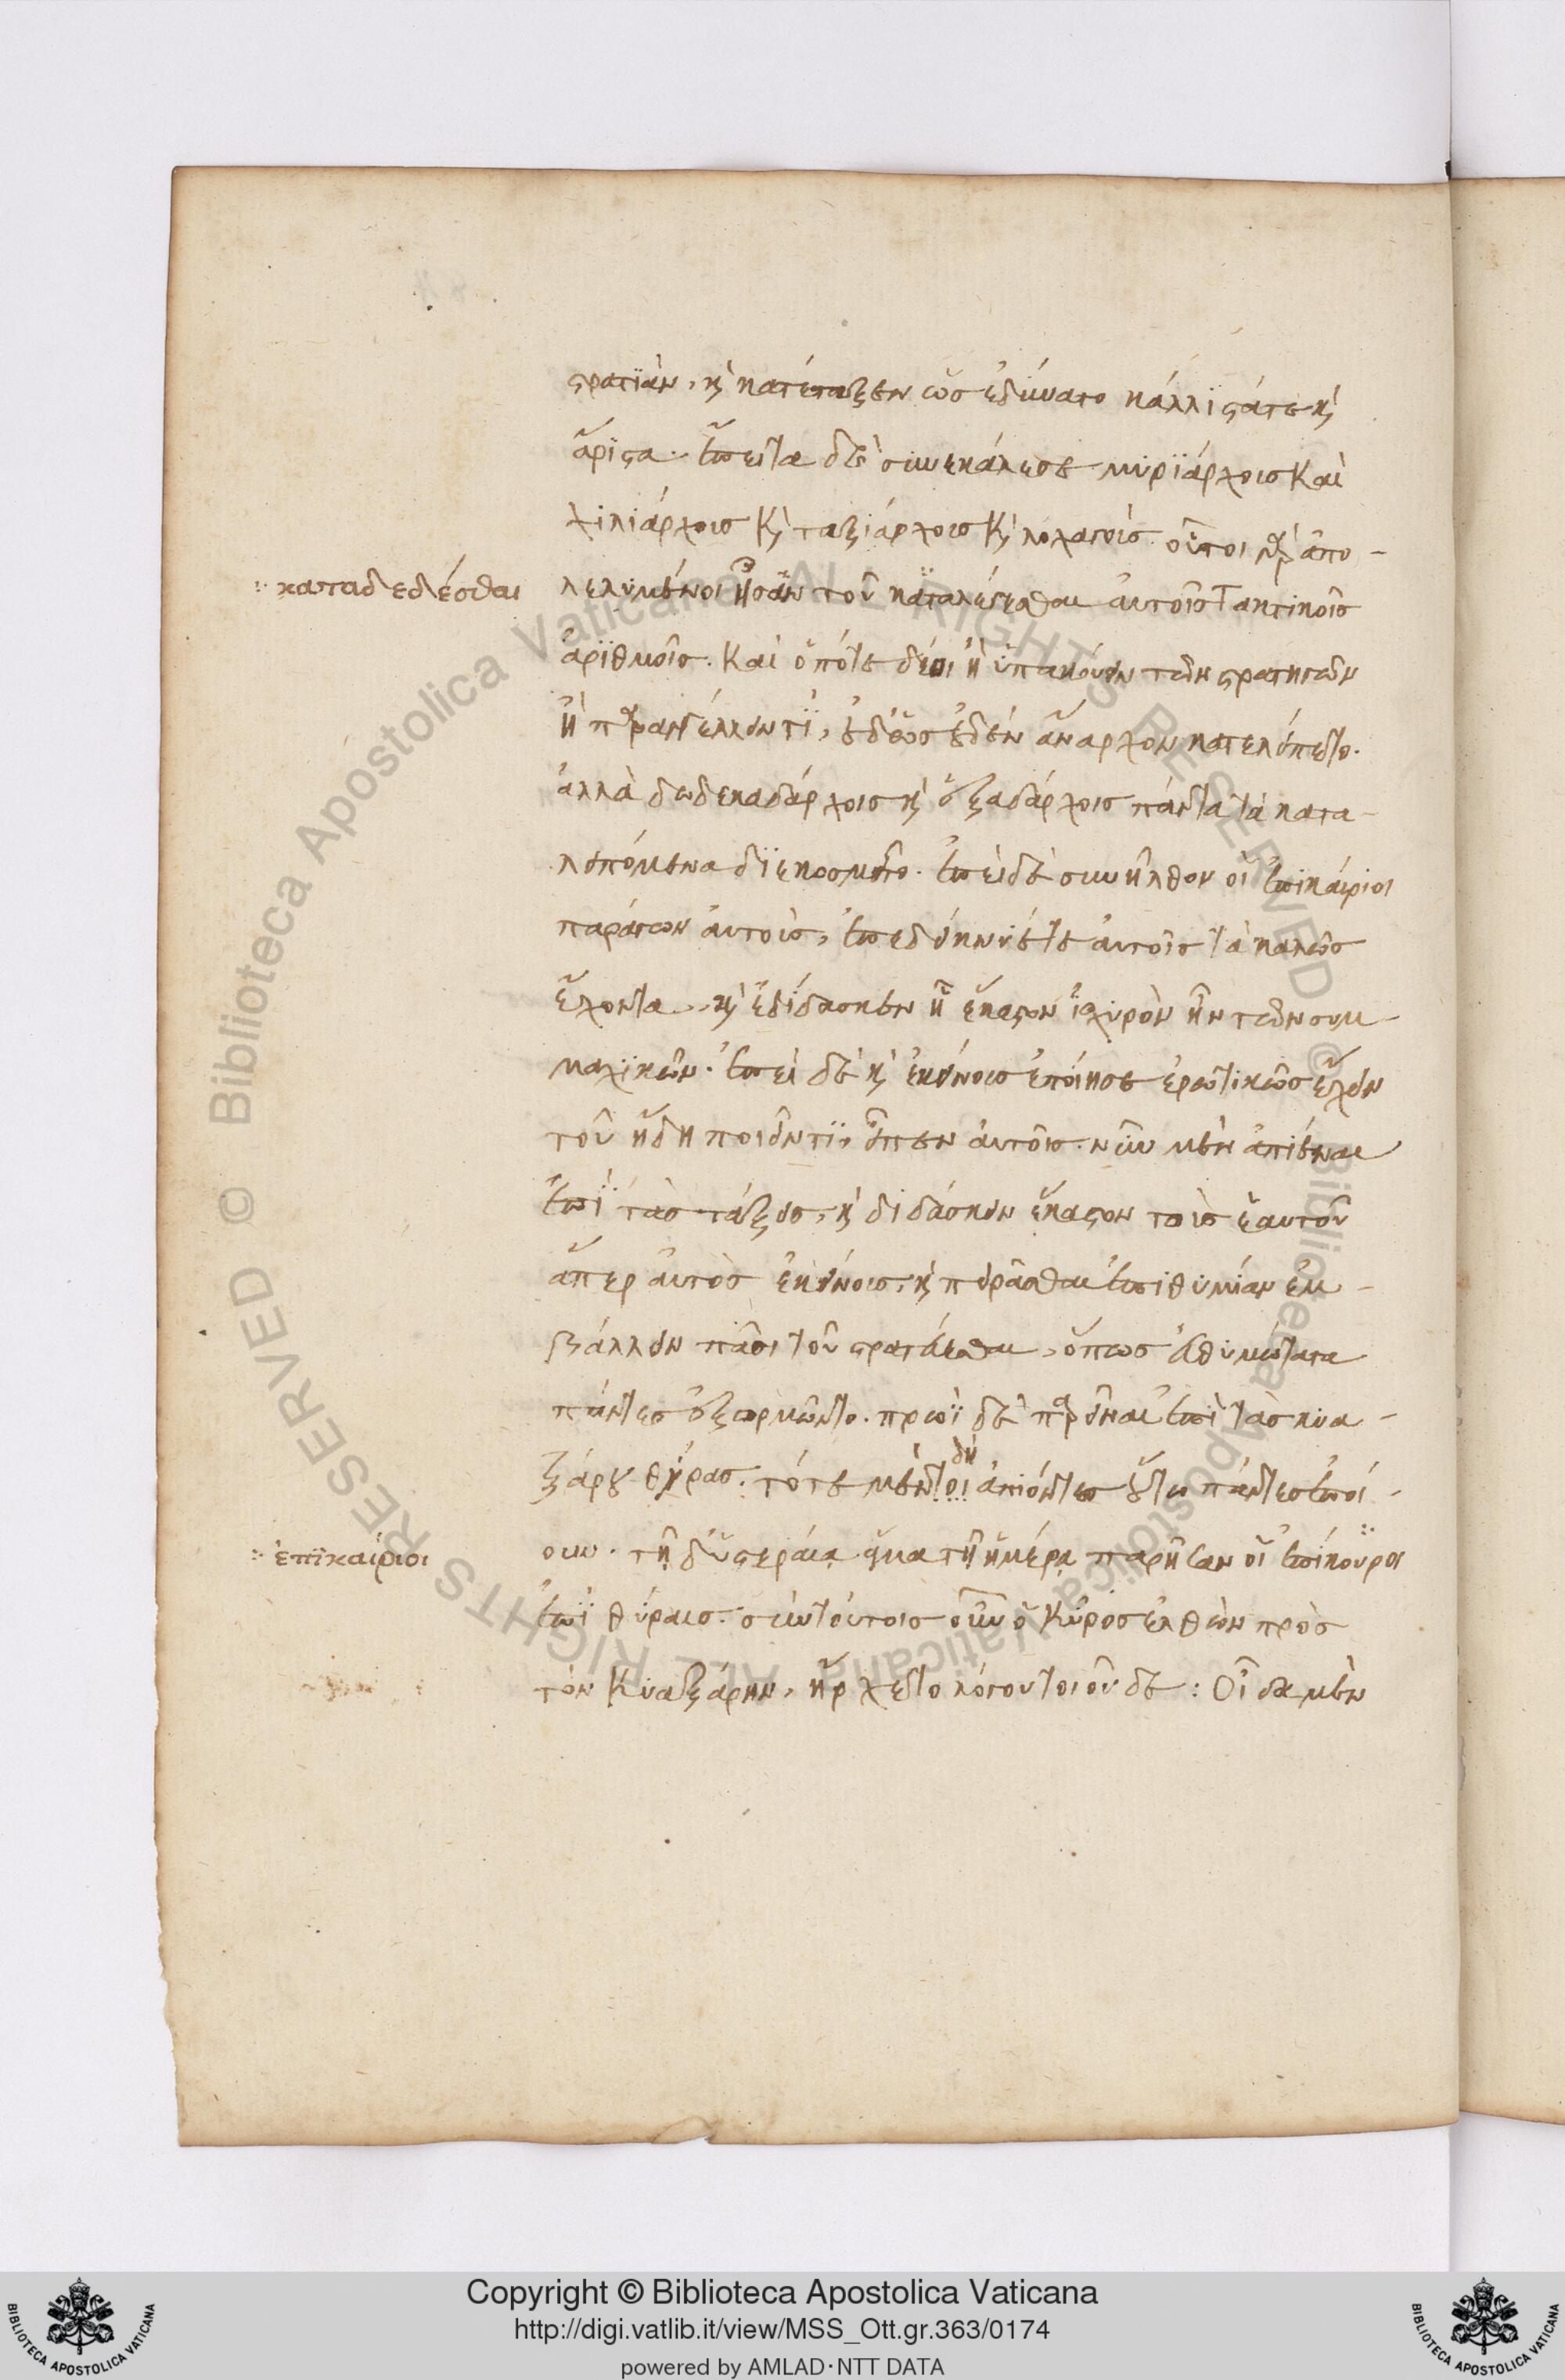 στρατϊὰν, κὶ κατέταξεν ὡς ἐδύνατο κάλλϊστάτε κὶ
ἄρϊστα. ἔπειτα δὲ συνεκάλεσε μυρϊάρχους καὶ
χιλιάρχους κὶ ταξιάρχους κὶ λοχαγούς. οὗτοι γὰρ ἀπο-
:· καταδεδέσθαι
λελυμένοι ἦσαν τοῦ καταλέγεσθαι αὐτοῖς τακτικοῖς
ἀρϊθμοῖς. καὶ ὁπότε δέοι ἢ ὑπακούειν τῶν στρατηγῶν
ἢ παραγγέλλειν τϊ, οὐδ' ὣς οὐδὲν ἄναρχον κατελείπετο.
ἀλλὰ δωδεκαδάρχοις κὶ ἑξαδάρχοις πάντα τὰ κατα-
λειπόμενα δϊεκοσμεῖτο. ἐπεὶ δὲ συνῆλθον οἱ ἐπικαίριοι
παράγων αὐτοὺς, ἐπεδείκνυέ τε αὐτοῖς τὰ καλῶς
ἔχοντα, κὶ ἐδίδασκεν ᾗ ἕκαστον ἰσχυρὸν ἦν τῶν συμ-
μαχϊκῶν. ἐπεὶ δὲ κὶ ἐκείνους ἐποίησε ἐρωτικῶς ἔχειν
τοῦ ἤδη ποιεῖν τϊ, εἶπεν αὐτοῖς. νῦν μὲν ἀπιέναι
ἐπὶ τὰς τάξεις, κὶ διδάσκειν ἕκαστον τοὺς ἑαυτοῦ
ἅπερ αὐτὸς ἐκείνους, κὶ πειρᾶσθαι ἐπιθυμίαν ἐμ-
βάλλειν πᾶσι τοῦ στρατεύεσθαι, ὅπως εὐθυμότατα
πάντες ἐξορμῶντο. πρωῒ δὲ παρεῖναι ἐπὶ τὰς κυα-
ξάρου θύρας. τότε μὲν δὴ τοι ἀπιόντες οὕτω πάντες ἐποί-
:· ἐπϊκαίριοι
ουν. τῇ δ' ὑστεραίᾳ ἅμα τῇ ἡμέρᾳ παρῆσαν οἱ ἐπίκουροι
ἐπὶ θύραις. σὺν τούτοις οὖν ὁ Κῦρος ἐλθὼν πρὸς
τὸν Κυαξάρην, ἤρχετο λόγου τοιοῦδε: Οἶδα μὲν
Copyright © Biblioteca Apostolica Vaticana
http://digi.vatlib.it/view/MSS_Ott.gr.363/0174
powered by AMLAD·NTT DATA
BIBLIOTECA APOSTOLICA VATICANA
BIBLIOTECA APOSTOLICA VATICANA
Biblioteca Apostolica Vaticana ALL RIGHTS RESERVED ©
Biblioteca Apostolica Vaticana ALL RIGHTS RESERVED ©